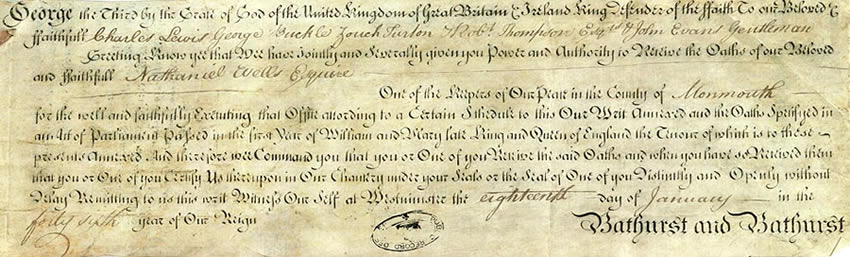 George the Third by the Grace of God of the United Kingdom of Great Britain & Ireland King Defender of the Faith To our Beloved &
ffaithfull Charles Lewis George Buckle Zouch Turton & Robt. Thompson Esqrs. & John Evans Gentleman
Greeting Know yee that Wee have Jointly and Severally given you Power and Authority to Receive the Oaths of our Beloved
and ffaithfull Nathaniel Wells Esquire
One of the Keepers of Our Peace in the County of Monmouth
for the well and faithfully Executing that Office according to a Certain Schedule to this Our Writ Annexed and the Oaths Specifyed in
an Act of Parliament Passed in the first Year of William and Mary late King and Queen of England the Tenour of which is to these
presents Annexed And therefore wee Command you that you or One of you Receive the said Oaths and when you have so Received them
that you or One of you Certify Us thereupon in Our Chancery under your Seals or the Seal of One of you Distinctly and Openly without
Delay Remitting to us this writ Witness Our Self at Westminster the eighteenth day of January in the
forty sixth year of Our Reign
Bathurst and Bathurst
RECORD OFF